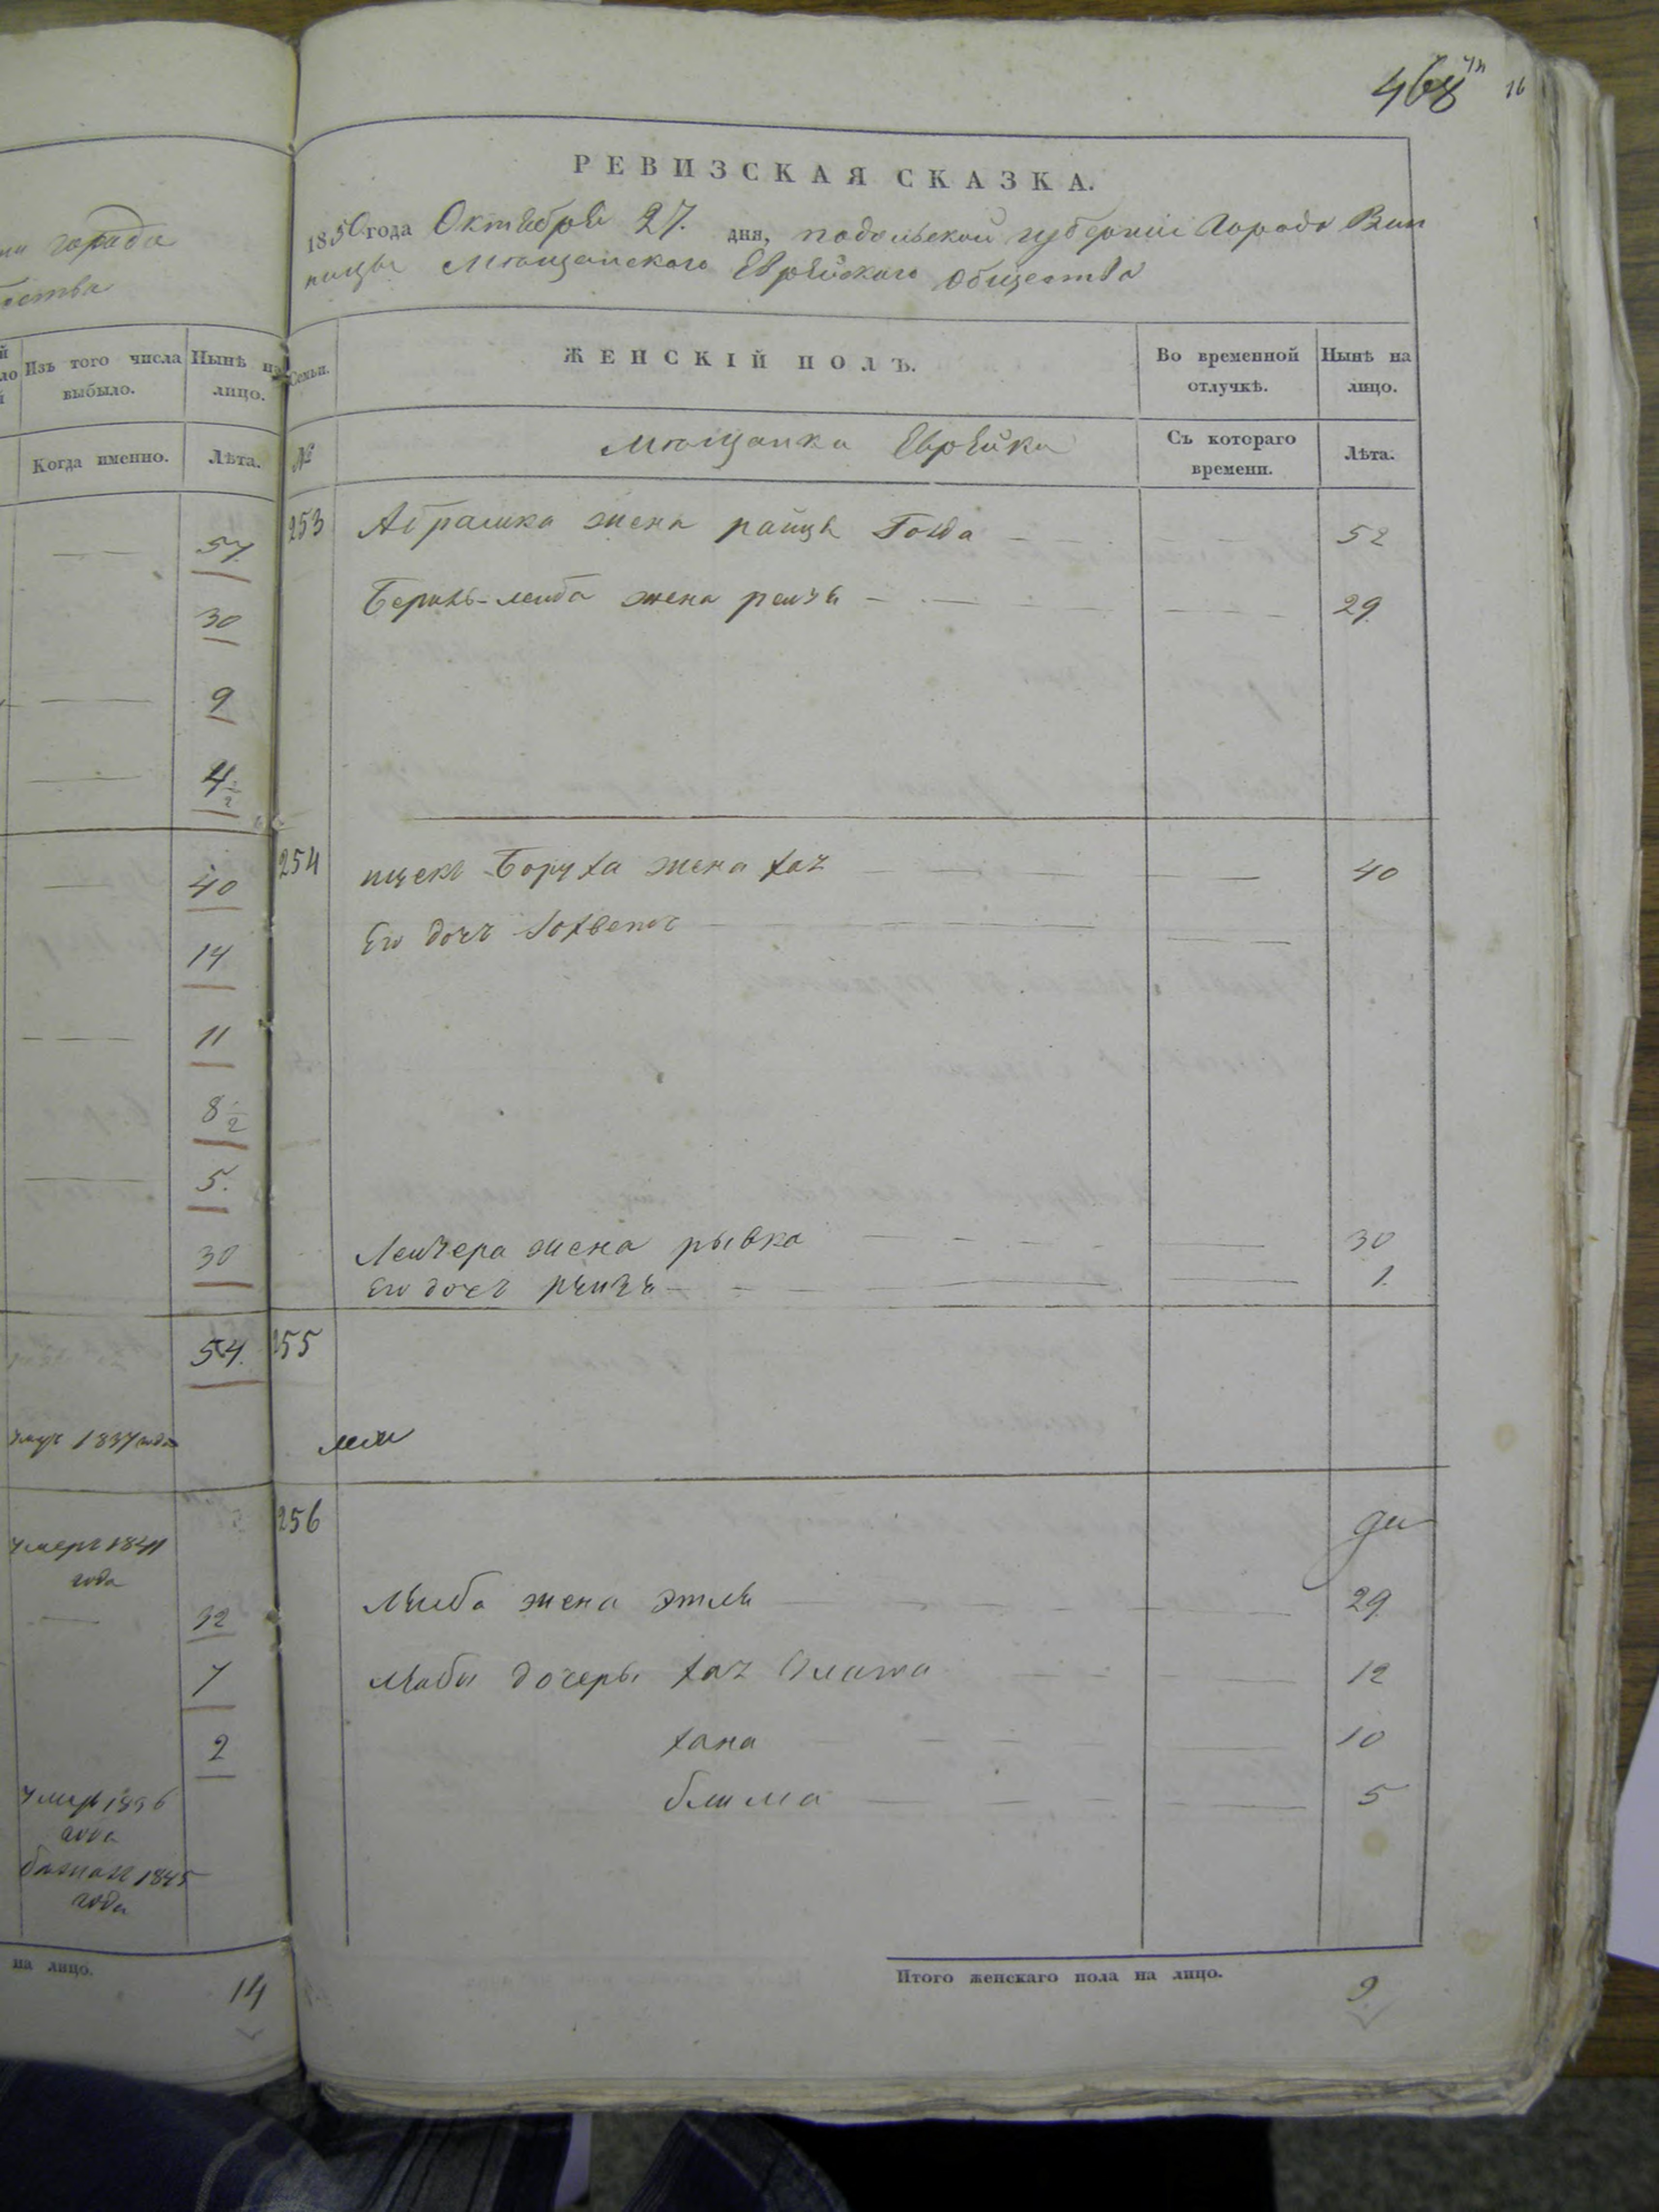 468
16
РЕВИЗСКАЯ СКАЗКА.
1850 года Октября 27. дня, подольской губернии Города Вин
ницы Мющанского Еврейского Общества
города
Изъ того числа выбыло.
Нынѣ на лицо.
Когда именно.
Лѣта.
57
30
9
4 1/2
40
14
11
8 1/2
5.
30
54.
1837 года
умеръ 1841
года
32
7
2
года
1845
года
на лицо.
14
Семьи.
ЖЕНСКІЙ ПОЛЪ.
Во временной отлучкѣ.
Нынѣ на лицо.
№
Мющанка Еврейки
Съ котораго времени.
Лѣта.
253 Абрамка жена райця Голда 52
Берко-лейба жена рейзя 29
254 ицека Боруха жена хая 40
Его дочь
Лейзера жена рывка 30
Его дочь 1.
255
256
Лейба жена этля 29
Лейбы дочеры хая 12
хана 10
блима 5
Итого женскаго пола на лицо.
9